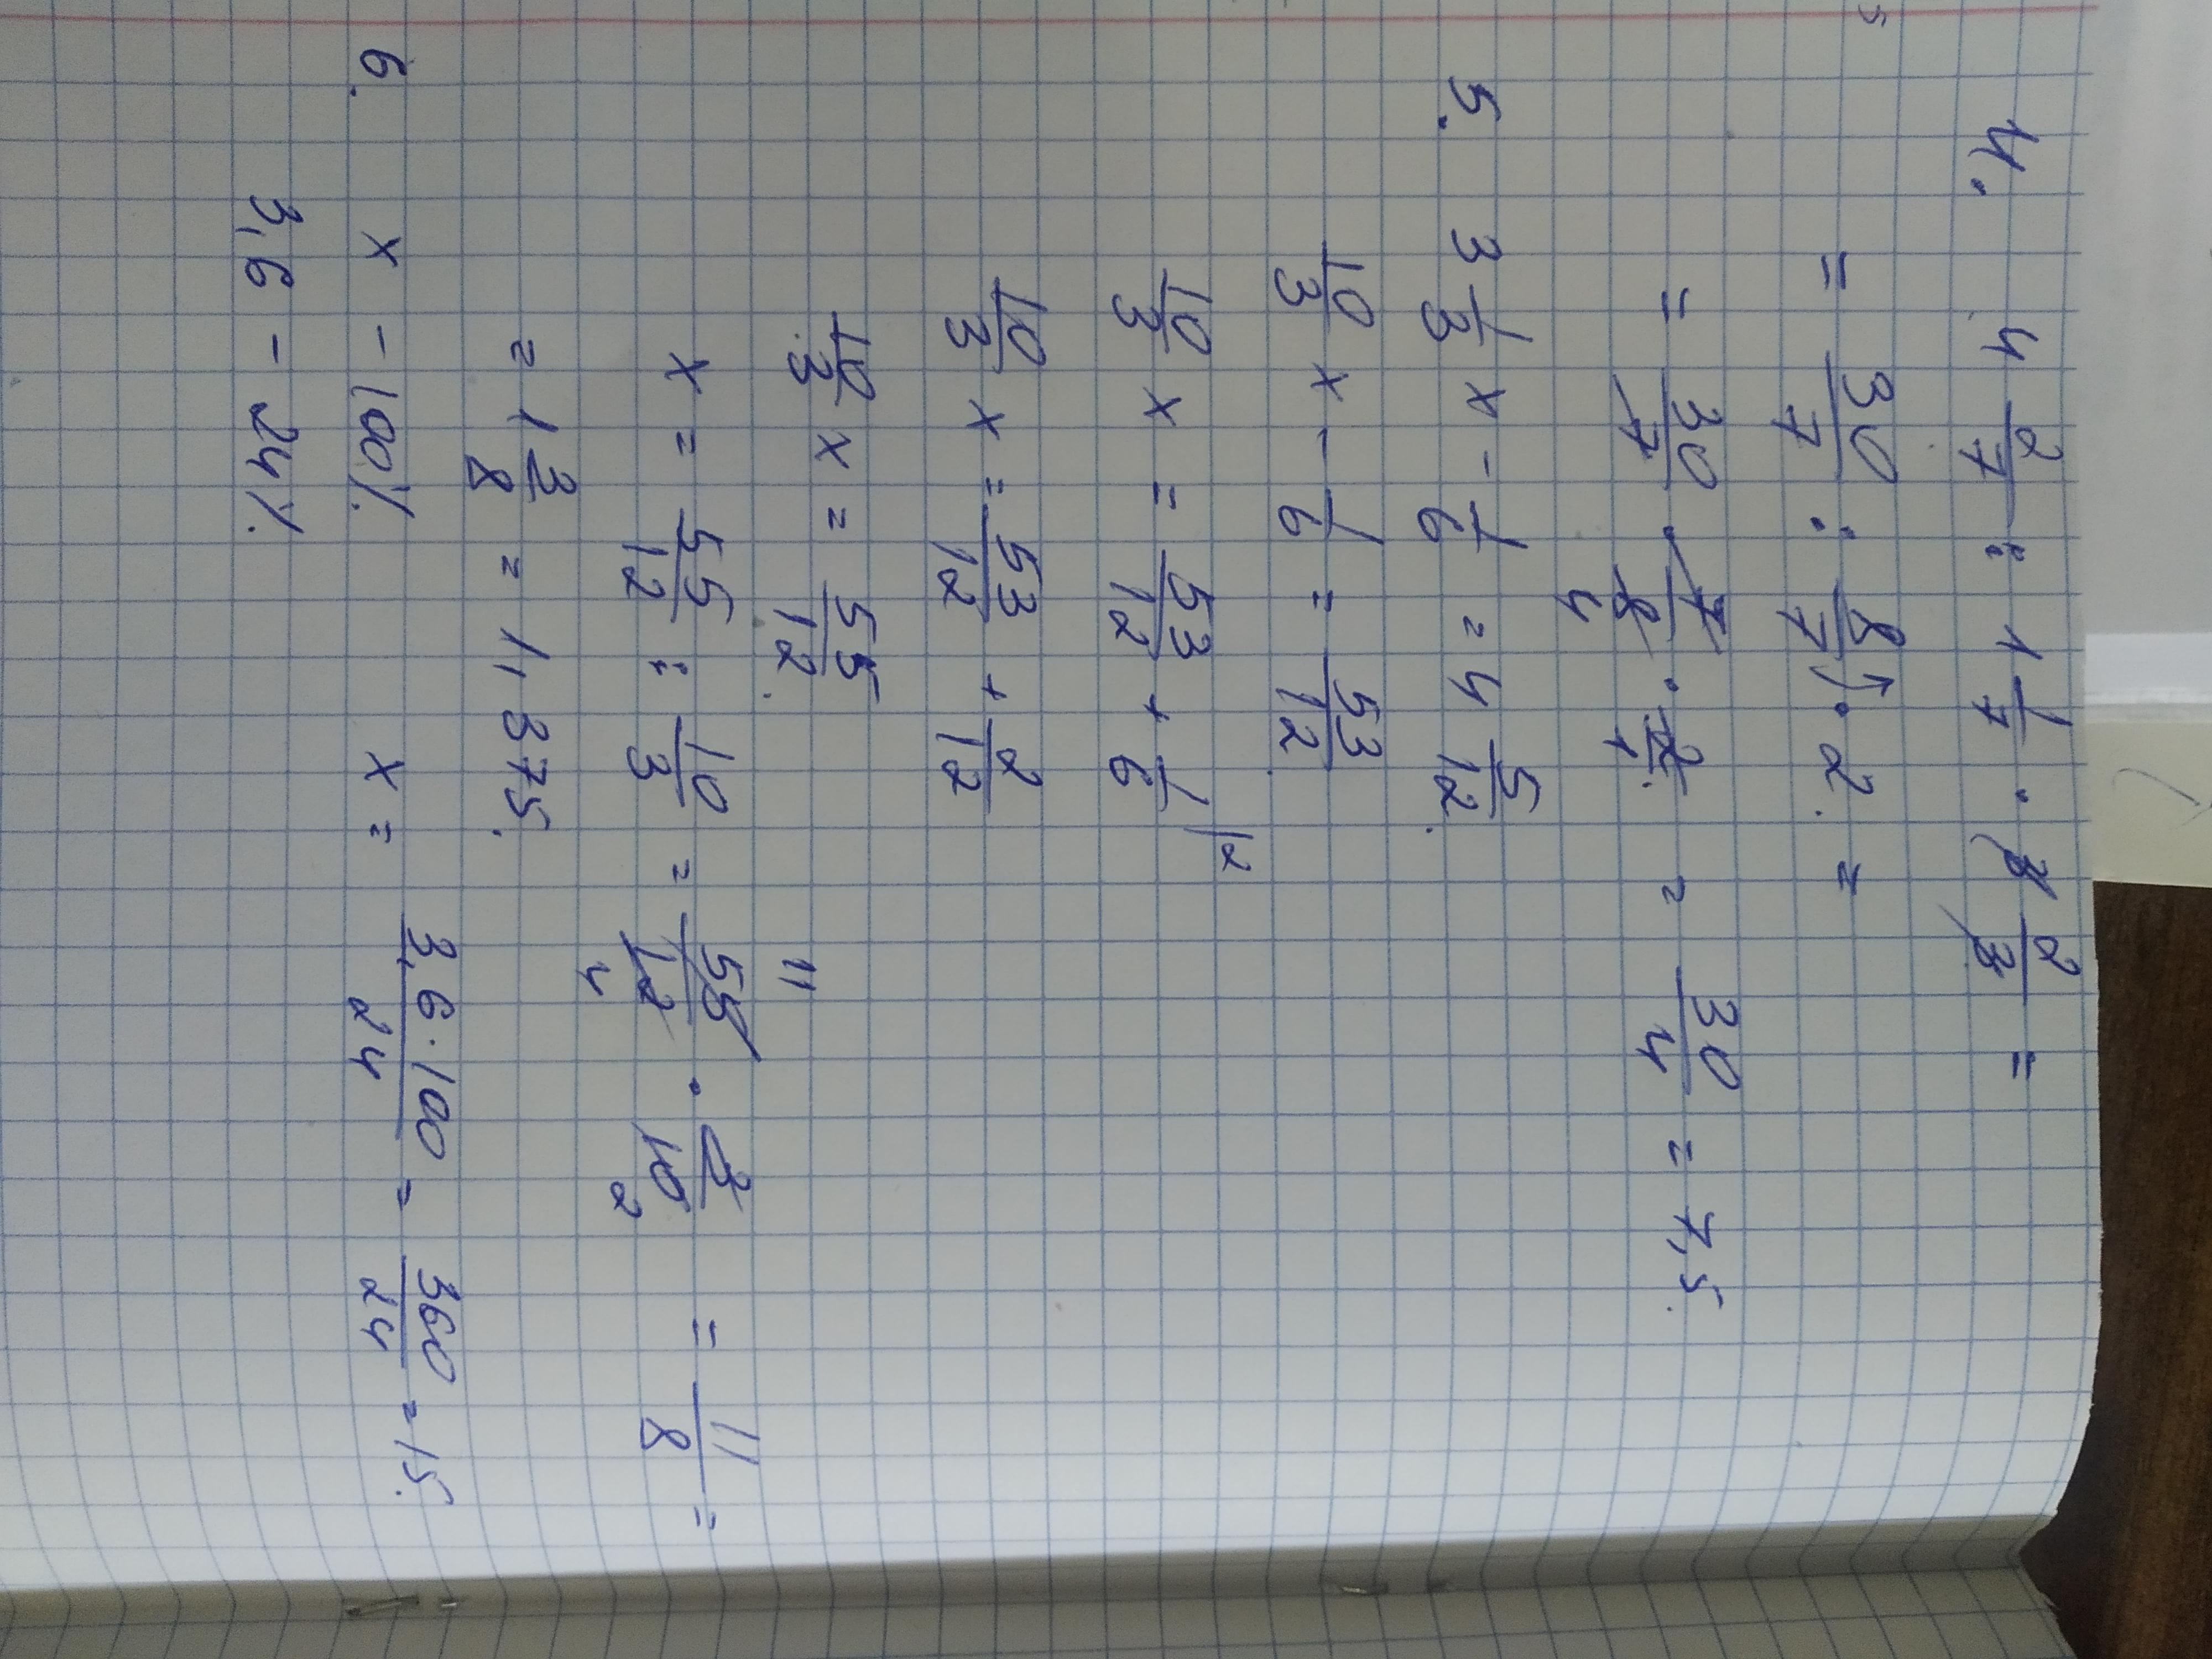 4. 4 2/7 : 1 1/7 · 3 2/3 =
= 30/7 : 8/7 · 2. =
= 30/7 · 7/8 · 2/1 = 30/4 = 7,5.
4
5. 3 1/3 x - 1/6 = 4 5/12.
10/3 x - 1/6 = 53/12.
10/3 x = 53/12 + 1/6 |2
10/3 x = 53/12 + 2/12
10/3 x = 55/12.
11
x = 55/12 : 10/3 = 55/12 · 3/10 = 11/8 =
4 2
= 1 3/8 = 1,375.
6. x - 100% x = 3,6·100/24 = 360/24 = 15.
3,6 - 24%.